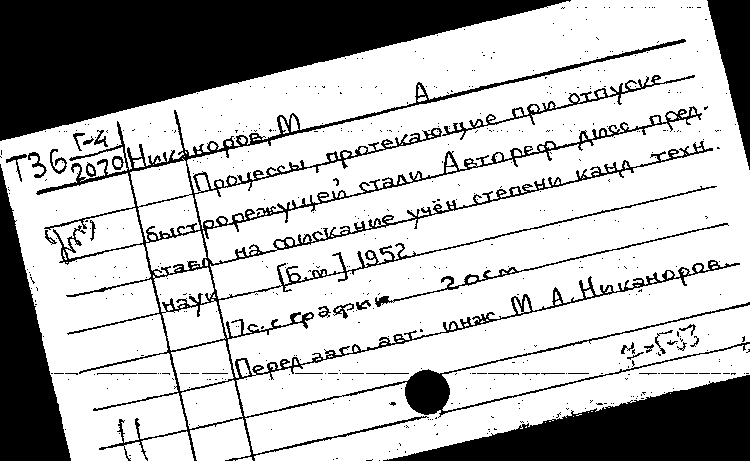 Т36 Г-4/2020 Никаноров, М А
Процессы, протекающие при отпуске
быстрорежущей стали. Автореф. дисс., пред-
ставл. на соискание учён. степени канд. техн.
наук. [Б.м.], 1952.
17с. с график 20см
Перед загл. авт: инж М. А. Никаноров.
7-5-53